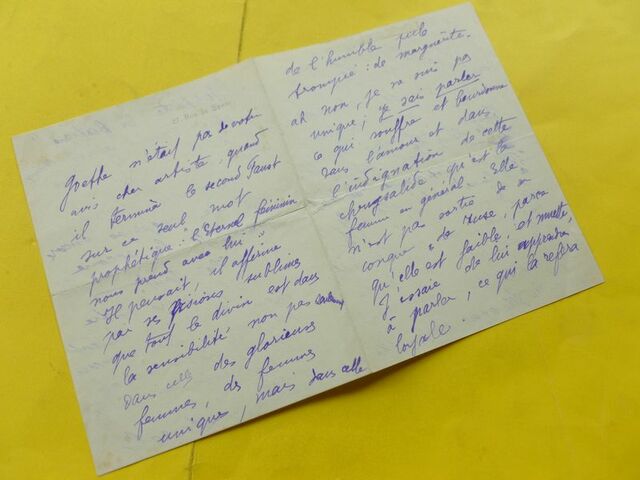 Goethe n'était pas de votre
avis cher artiste, quand
il termina le second Faust
sur ce seul mot
prophétique : l'Eternel féminin
nous prend avec lui !
Il pouvait, il affirme
par ses visions sublimes
que tout le divin est dans
la sensibilité non pas
dans celle des glorieuses
femmes, des femmes
uniques, mais dans celle
de l'humble fille
trompée : de marguerite.
ah non, je ne suis pas
unique ; je sais parler
ce qui souffre et bourdonne
dans l'amour et dans
l'indignation de cette
chrysalide qu'est la
femme en général. Elle
n'est pas sortie de sa
conque de ruse, parce
qu'elle est faible, et muette,
j'essaie de lui apprendre
à parler, ce qui la refera
loyale.